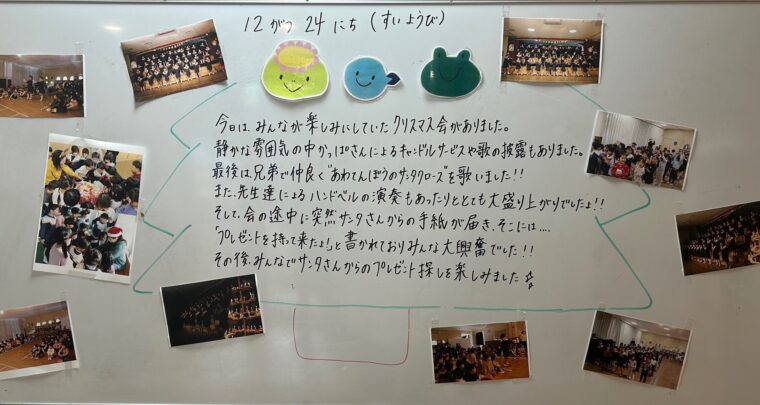 12がつ 24にち (すいようび)
今日は、みんなが楽しみにしていたクリスマス会がありました。
静かな雰囲気の中かっぱさんによるキャンドルサービスや歌の披露もありました。
最後は、兄弟で仲良く"あわてんぼうのサンタクロース"を歌いました!!
また、先生達によるハンドベルの演奏もあったりととても大盛り上がりでしたよ!!
そして、会の途中に突然サンタさんからの手紙が届き、そこには....
「プレゼントを持って来たよ!」と書かれておりみんな大興奮でした!!
その後、みんなでサンタさんからのプレゼント探しを楽しみました☆